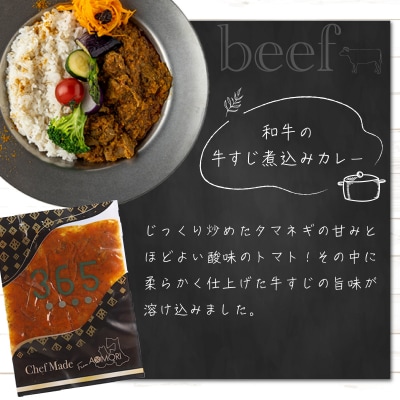 beef
和牛の
牛すじ煮込みカレー
じっくり炒めたタマネギの甘みと
ほどよい酸味のトマト！その中に
柔らかく仕上げた牛すじの旨味が
溶け込みました。
365
Chef Made
From AOMORI